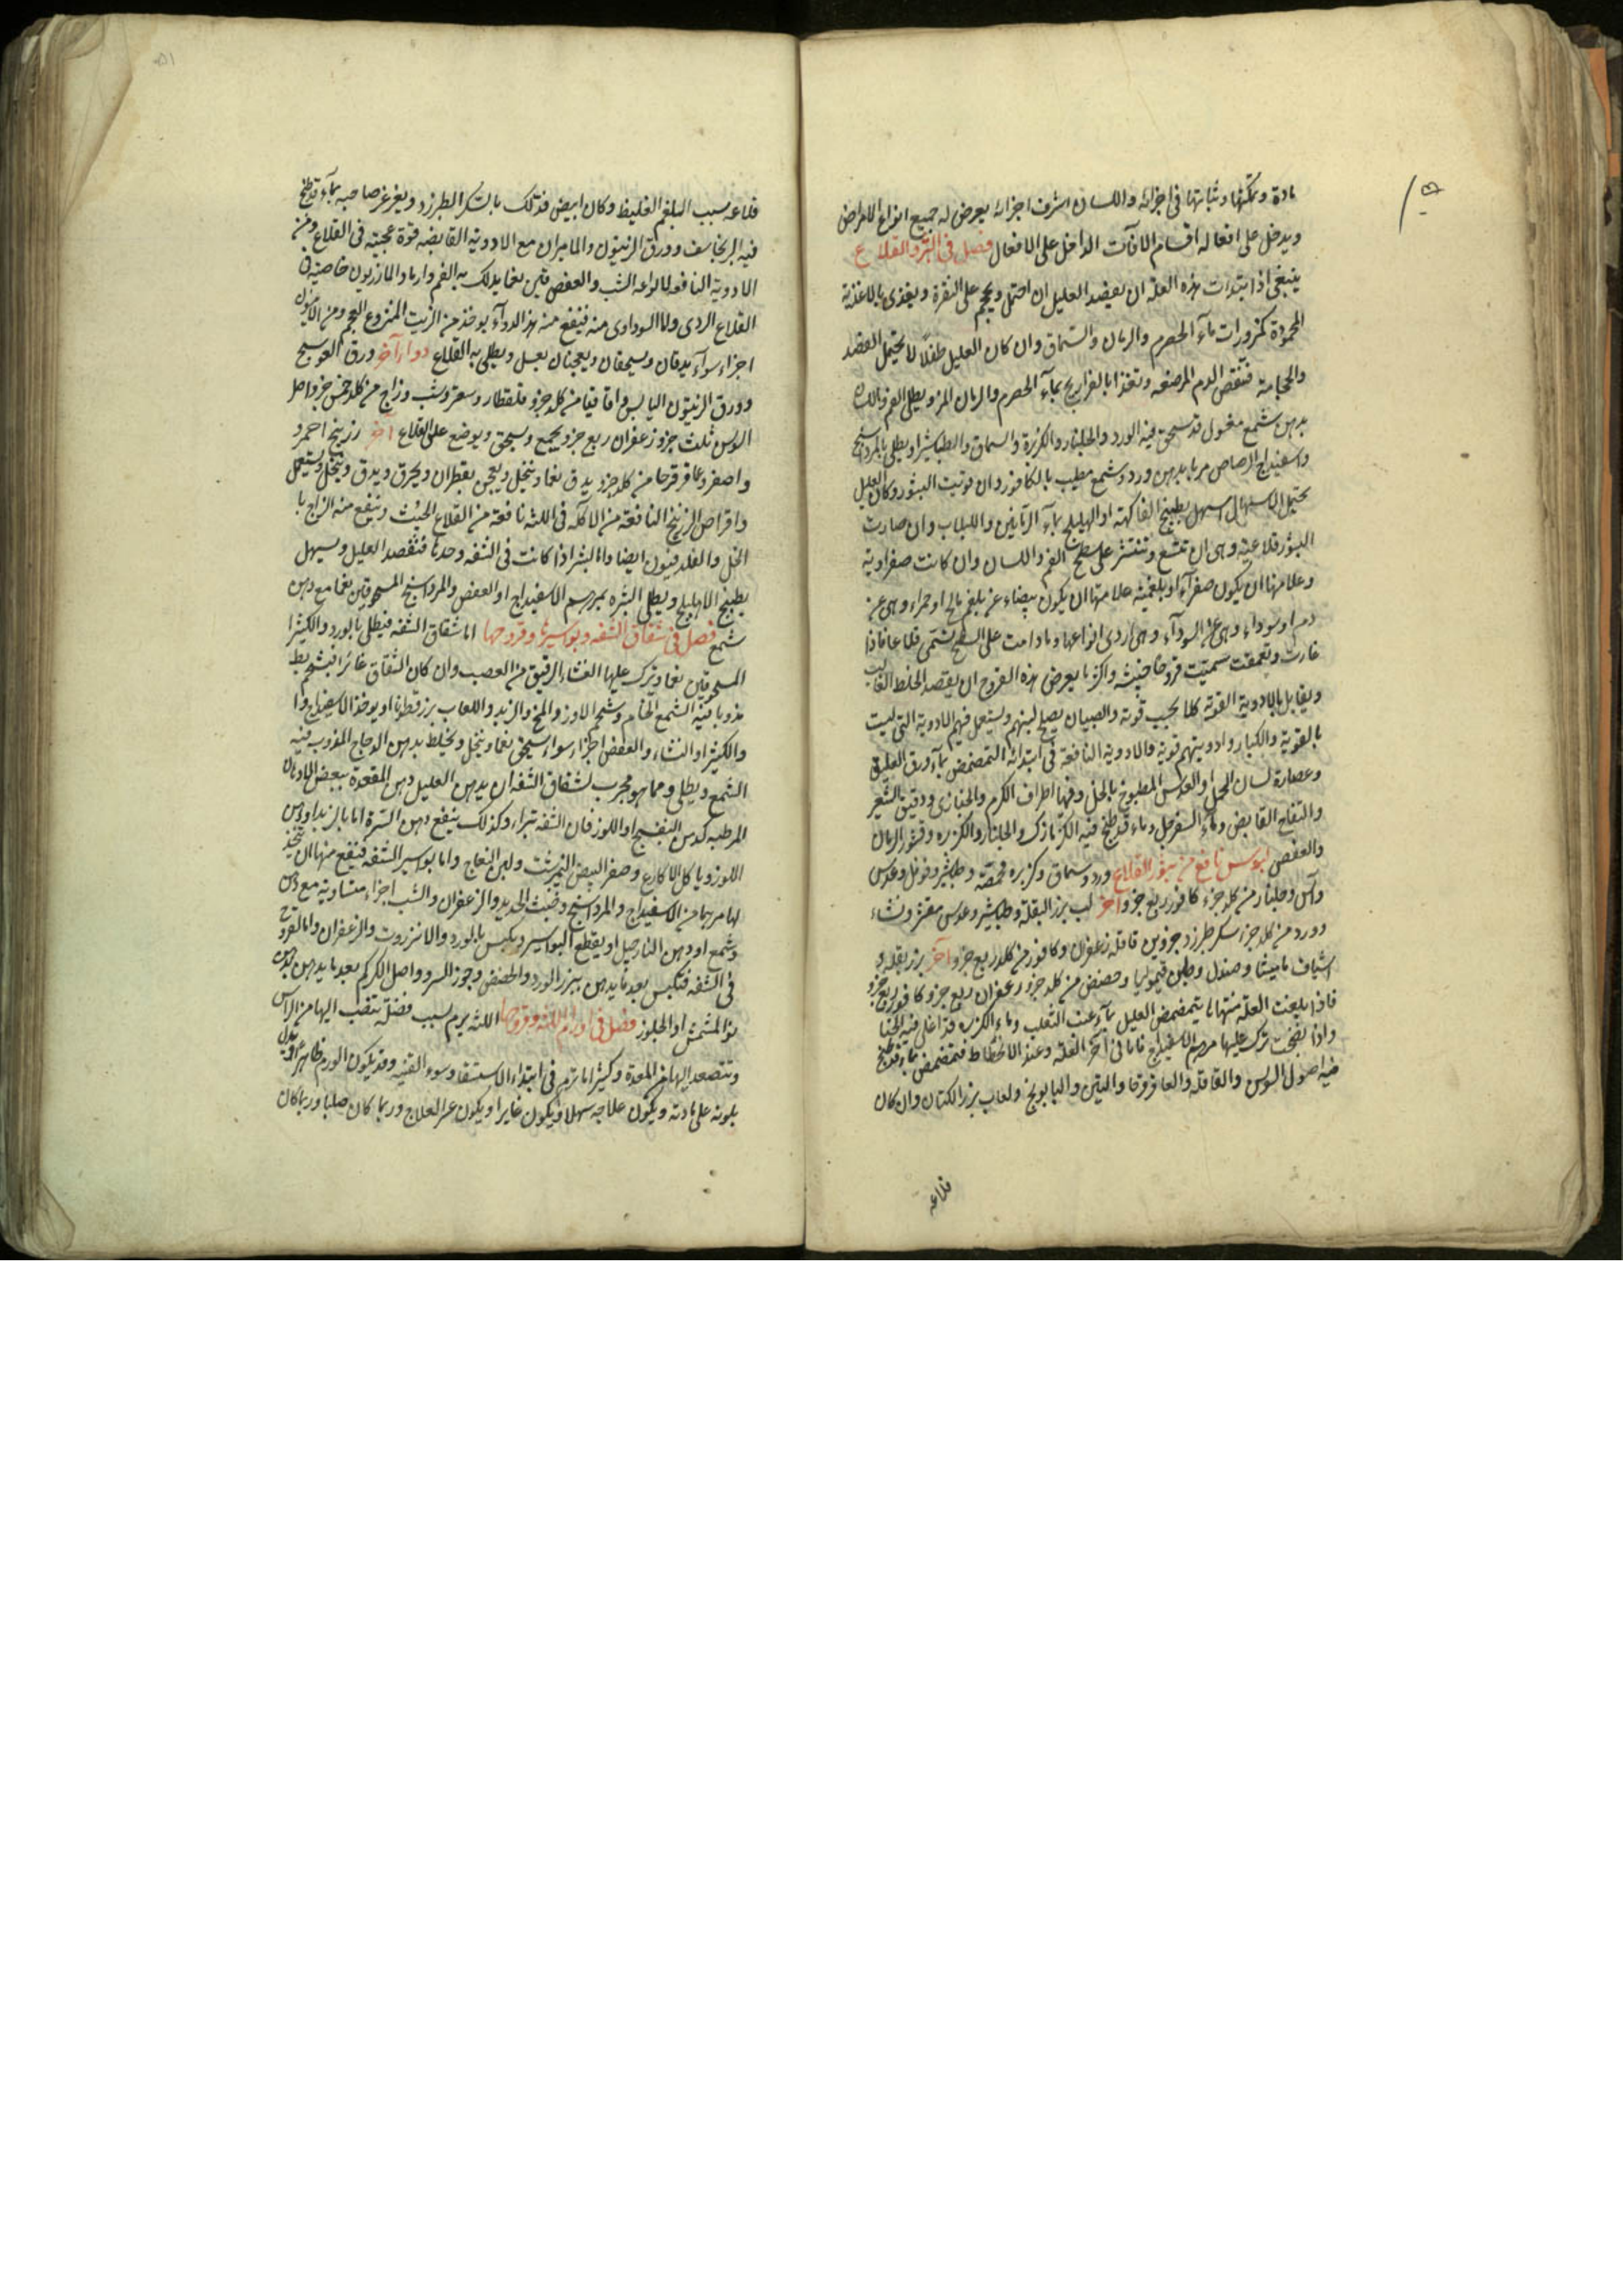 مادة وتمكنها وثباتها فى اجزائه واللسان اشرف اجزائه يعرض له جميع انواع الامراض
ويدخل على افعاله اقسام الافات الداخل على الافعال فصل فى البثر والقلاع
ينبغى اذا ابتدات هذه العلة ان يفصد العليل ان احتمل ويحجم على النقرة ويغذى بالاغذية
المحمودة كمزورات ماء الحصرم والرمان والسماق وان كان العليل طفلا لا يحتمل الفصد
والحجامة فتنقص الدم المرضعه وتغذا بالفراريج بماء الحصرم والرمان المز ويطلى الفم
بدهن شمع مغسول قد سحق فيه الورد والجلنار والكزبرة والسماق والطباشير او يطلى بالمرداسنج
واسفيداج الرصاص مربا بدهن ورد وشمع مطيب بالكافور وان قويت البثور وكان العليل
يحتمل الاسهال اسهل بطبيخ الفاكهة او الهليلج بماء الرمانين واللبلاب وان صارت
البثور قلاعية وهى ان تتسع وتنتشر على سطح الفم واللسان وان كانت صفراوية
وعلامتها ان يكون صفراء او بلغمية علامتها ان يكون بيضاء عن بلغم مالح او حمراء وهى عن
دم او سوداء وهى عن السوداء وهى اردى انواعها وما دامت على السطح تسمى قلاعا فاذا
غارت وتعمقت سميت قروحا خبيثه واكثر ما يعرض هذه القروح ان يقصد الخلط الغالب
ويقابل بالادوية القوية كلا بحسب قوته والصبيان يصلح لبنهم ويستعمل فيهم الادوية التى ليست
بالقوية والكبار وادويتهم قوية والادوية النافعة فى ابتدائه التمضمض بماء ورق العليق
وعصارة لسان الحمل او العدس المطبوخ بالخل وفيها اطراف الكرم والخبازى ودقيق الشعير
والتفاح القابض وماء السفرجل وماء قد طبخ فيه الكزمازك والجلنار والكزبره وقشور الرمان
والعفص لبوس نافع من بثور القلاع ورد وسماق وكزبره محمصة وطباشير وفوفل وعدس
وآس وجلنار من كلد جزء كافور ربع جزو آخر لب بزر البقلة وطباشير وعدس مقشر ونشاء
وورد من كلد جزء سكر طبرزد جزوين قاقله زعفران وكافور من كلد ربع جزو آخر بزر بقله و
اشياف ماميثا وصندل وطين قيموليا وحضض من كلد جزو زعفران ربع جزو كافور ربع جزو
فاذا بلغت العلة منتهاها يتمضمض العليل بماء عنب الثعلب وماء الكزبره قد اغلى فيه الحنا
واذا نضجت ترك عليها مرهم الاسفيداج فاما فى آخر العلة وعند الانحطاط فتمضمض بماء قد طبخ
فيه اصول السوس والقاقله والعاقرقرحا والتين والبابونج ولعاب بزر الكتان وان كان
قلاعه
قلاعه بسبب البلغم الغليظ وكان ابيض فتدلك بالسكر الطبرزد ويغرغر صاحبه بماء قد طبخ
فيه البرنجاسف وورق الزيتون والماميران مع الادوية القابضه قوة عجيبة فى القلاع ومن
الادوية النافعه لانواعه الشب والعفص يدلك به الفم وارماد المازريون خاصية فى
القلاع الردى والسوداوى منه فينفع منه هذا الدواء يوخذ من الزبيب المنزوع العجم ومن
اجزاء سوآء يدقان ويسحقان ويعجنان بعسل ويطلى به القلاع دواء آخر ورق العوسج
وورق الزيتون اليابس واقاقيا من كلد جزو قلقطار وسعتر وشب وزاج من كلد خمس جزو اصل
السوس ثلث جزو زعفران ربع جزو يجمع ويسحق ويوضع على القلاع آخر زرنيخ احمر و
واصفر وعاقرقرحا من كلد جزو يدق نعما وينخل ويعجن بقطران ويحرق ويدق وينخل ويستعمل
واقراص الزرنيخ النافعة من الاكله فى اللثه نافعة من القلاع الخبيث وينفع منه الزاج با
الخل والقلدفيون ايضا واما البثر اذا كانت فى الشفه وحدها فتفصد العليل ويسهل
بطبيخ الاهليلج ويطلى البثره بمرهم الاسفيداج او العفص والمرداسنج المسحوقين نعما مع دهن
شمع فصل فى شقاق الشفه وبواسيرها وقروحها اما شقاق الشفه فيطلى بالورد والكثيرا
المسحوقين نعما ويترك عليها الغشاء الرقيق من العصب وان كان الشقاق غائرا فبشحم بط
مذوبا فيه الشمع الخام وشحم الاوز والمخ والزبد واللعاب بزر قطونا او يوخذ الاسفيداج وا
والكثيرا والنشاء والعفص اجزاء سواء يسحق نعما وينخل ويخلط بدهن الدجاج المذوب فيه
الشمع ويطلى ومما هو مجرب لشقاق الشفه ان يدهن العليل دهن المقعدة ببعض الادهان
المرطبه كدهن البنفسج او اللوز فان الشفه تبراء وكذلك ينفع دهن السرة اما بالزبد او دهن
اللوز وياكل الاكارع وصفر البيض النيمرشت ولبن النعاج واما بواسير الشفه فينفع منها ان يتخذ
لها مرهما من الاسفيداج والمرداسنج وخبث الحديد والزعفران والشب اجزاء متساوية مع دهن
وشمع او دهن النارجيل او يقطع البواسير ويكبس بالورد والانزروت والزعفران واما القروح
فى الشفه فتكبس بعد ما يدهن ببزر الورد والحضض وجوز السرو واصل الكركم بعد ما يدهن بدهن
نوا المشمش او الجلوز فصل فى اورام اللثه وقروحها اللثه يرم بسبب فضلة تنصب اليها من الراس
وتتصعد اليها من المعدة وكثيرا ما ترم فى ابتداء الاستسقا وسوء القنيه وقد يكون الورم ظاهرا
بلونه على مادته ويكون علاجه سهلا ويكون غايرا ويكون عسر العلاج وربما كان صلبا وربما كان